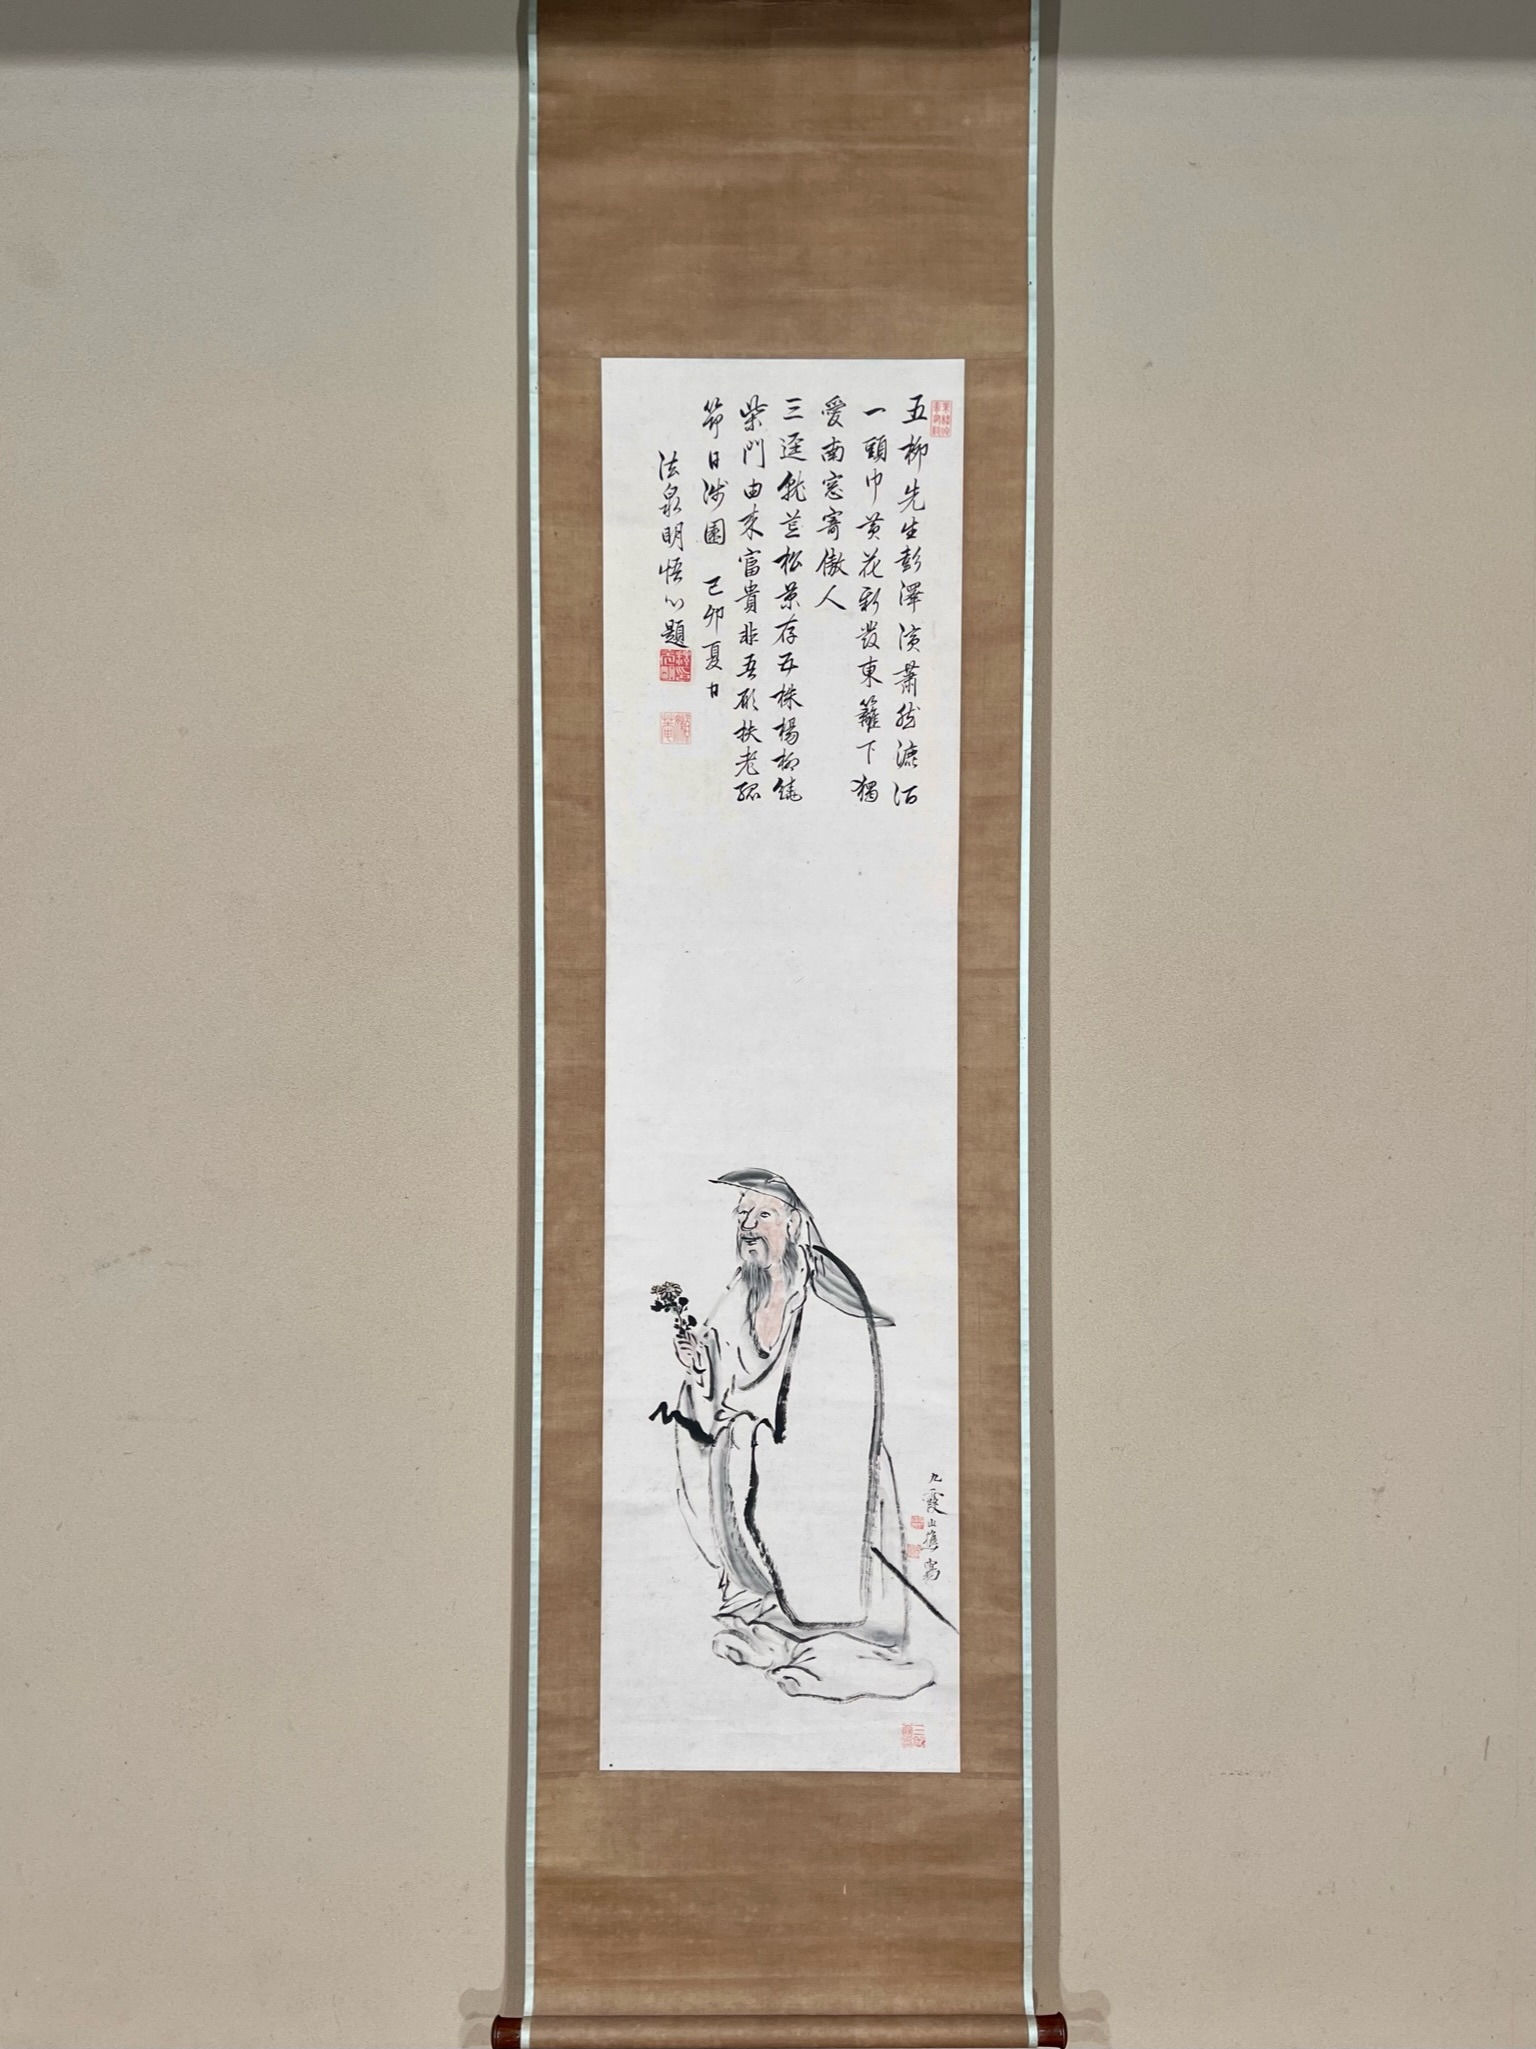 五柳先生彭澤濱蕭然漉酒
一頭巾黃花新發東籬下獨
愛南窓寄傲人
三逕就荒松菊存五株楊柳繞
柴門由來富貴非吾願扶老
節日涉園 己卯夏日
法泉明悟心題
九霞山樵寫